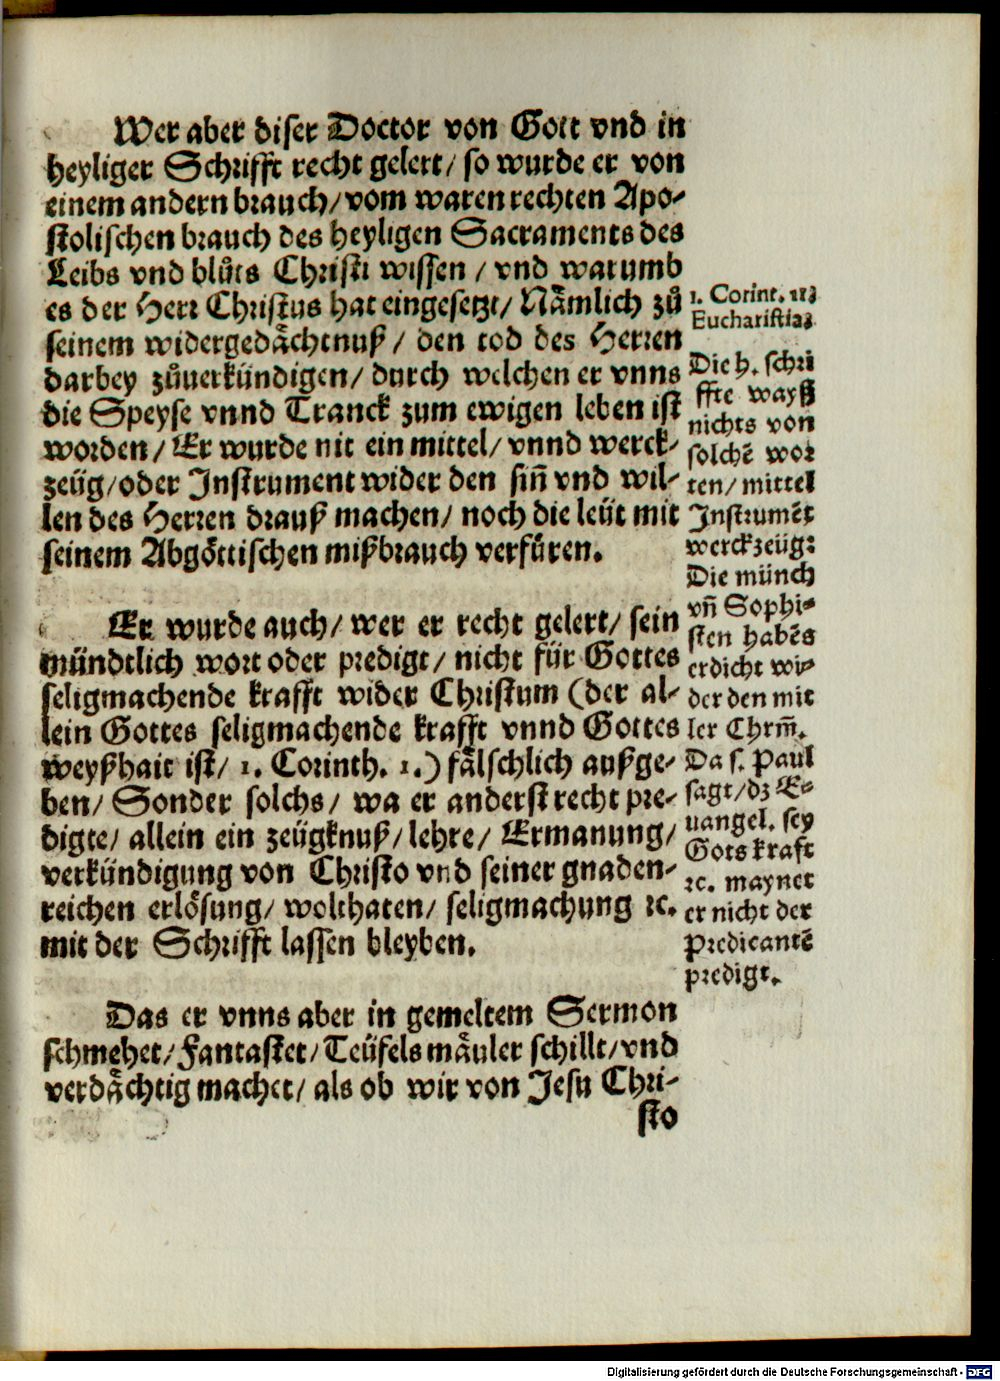 Wer aber diser Doctor von Gott vnd in
heyliger Schrifft recht gelert/ so wurde er von
einem andern brauch/ vom waren rechten Apo-
stolischen brauch des heyligen Sacraments des
Leibs vnd blůts Christi wissen/ vnd warumb
es der Herr Christus hat eingesetzt/ Nämlich zů
seinem widergedächtnuß/ den tod des Herren
darbey zůuerkündigen/ durch welchen er vnns
die Speyse vnnd Tranck zum ewigen leben ist
worden/ Er wurde nit ein mittel/ vnnd werck-
zeüg/ oder Instrument wider den siñ vnd wil-
len des Herren drauß machen/ noch die leüt mit
seinem Abgöttischen mißbrauch verfüren.
Er wurde auch/ wer er recht gelert/ sein
mündtlich wort oder predigt/ nicht für Gottes
seligmachende krafft wider Christum (der al-
lein Gottes seligmachende krafft vnnd Gottes
weyßhait ist/ 1. Corinth. 1.) fälschlich außge-
ben/ Sonder solchs/ wa er anderst recht pre-
digte/ allein ein zeügknuß/ lehre/ Ermanung/
verkündigung von Christo vnd seiner gnaden-
reichen erlösung/ wolthaten/ seligmachung ꝛc.
mit der Schrifft lassen bleyben.
Das er vnns aber in gemeltem Sermon
schmehet/ Fantastet/ Teüfels mäuler schillt/ vnd
verdächtig machet/ als ob wir von Jesu Chri-
sto
1. Corint. 11
Eucharistia
Die h. schri
fft wayß
nichts von
solchẽ wor
ten/ mittel
Instrumẽt
werckzeüg:
Die münch
vñ Sophi-
sten habẽs
erdicht wi-
der den mit
ler Chrm̃.
Da s. Paul
sagt/ dz E-
uangel. sey
Gots kraft
ꝛc. maynet
er nicht der
Predicantẽ
predigt.
Digitalisierung gefördert durch die Deutsche Forschungsgemeinschaft - DFG